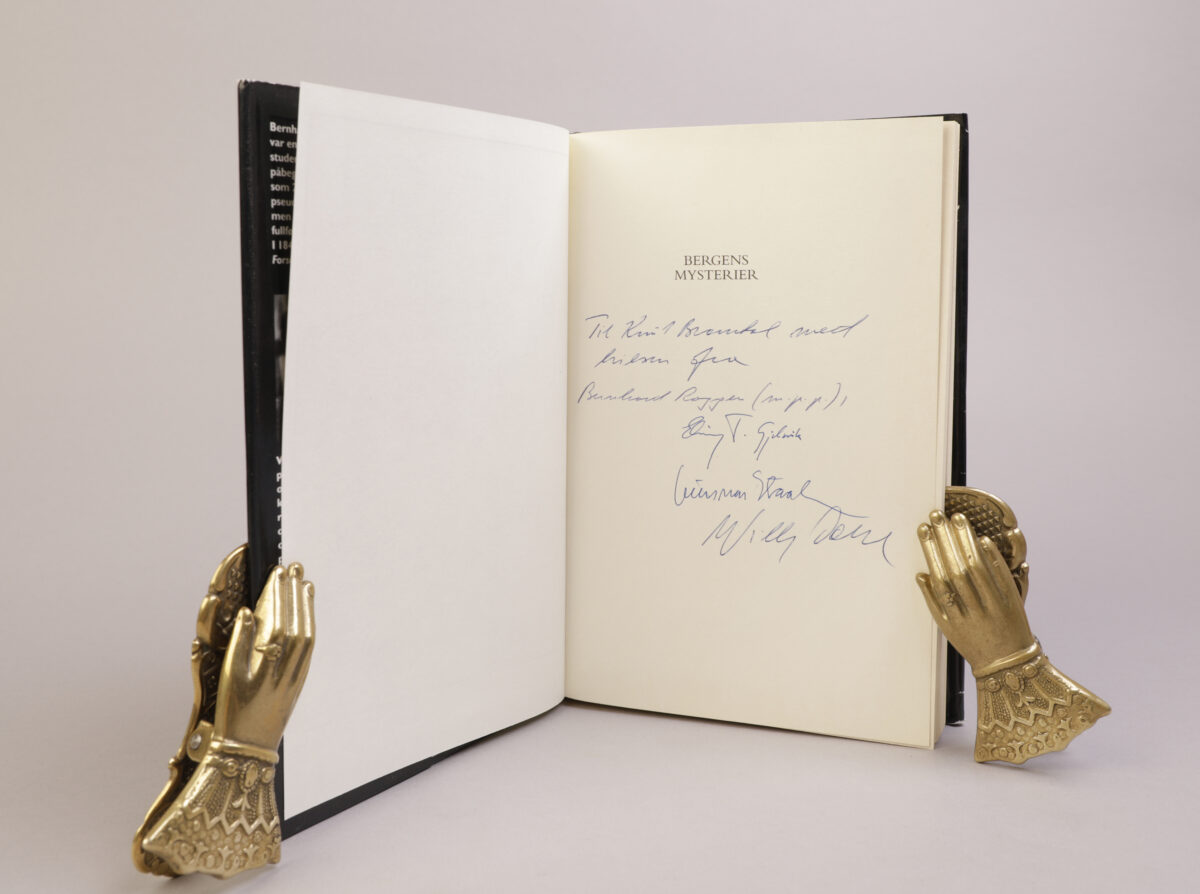 Bernh
var en
stude
påbeg
som
pseu
men
fullfø
I 18
Fors
BERGENS
MYSTERIER
Til Knut Bromdal med
hilsen fra
Bernhard Roggen (m.p.p.),
Elling T. Gjelsvik
Gunnar Staal
Willy Dahl